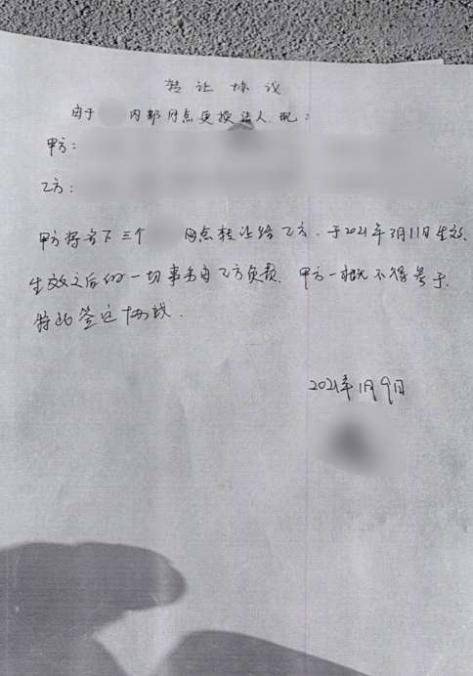 转让协议
由于 内部网点更换法人.现:
甲方:
乙方:
甲方将名下三个 网点转让给乙方.于2021年3月11日生效.
生效之后的一切事务由乙方负责.甲方一概不得参于.
特此签定协议.
2021年1月9日